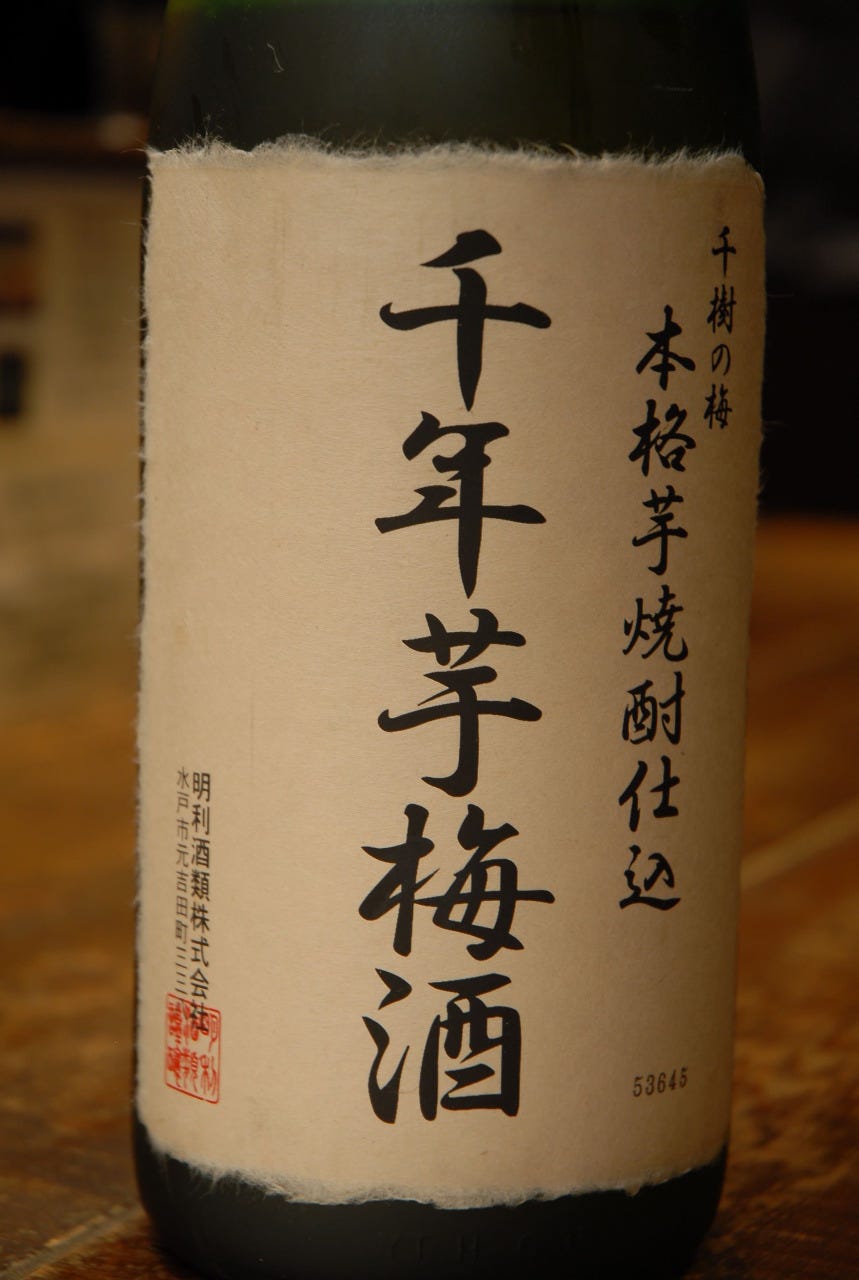 千樹の梅
本格芋焼酎仕込
千年芋梅酒
明利酒類株式会社
水戸市元吉田町三三
53645